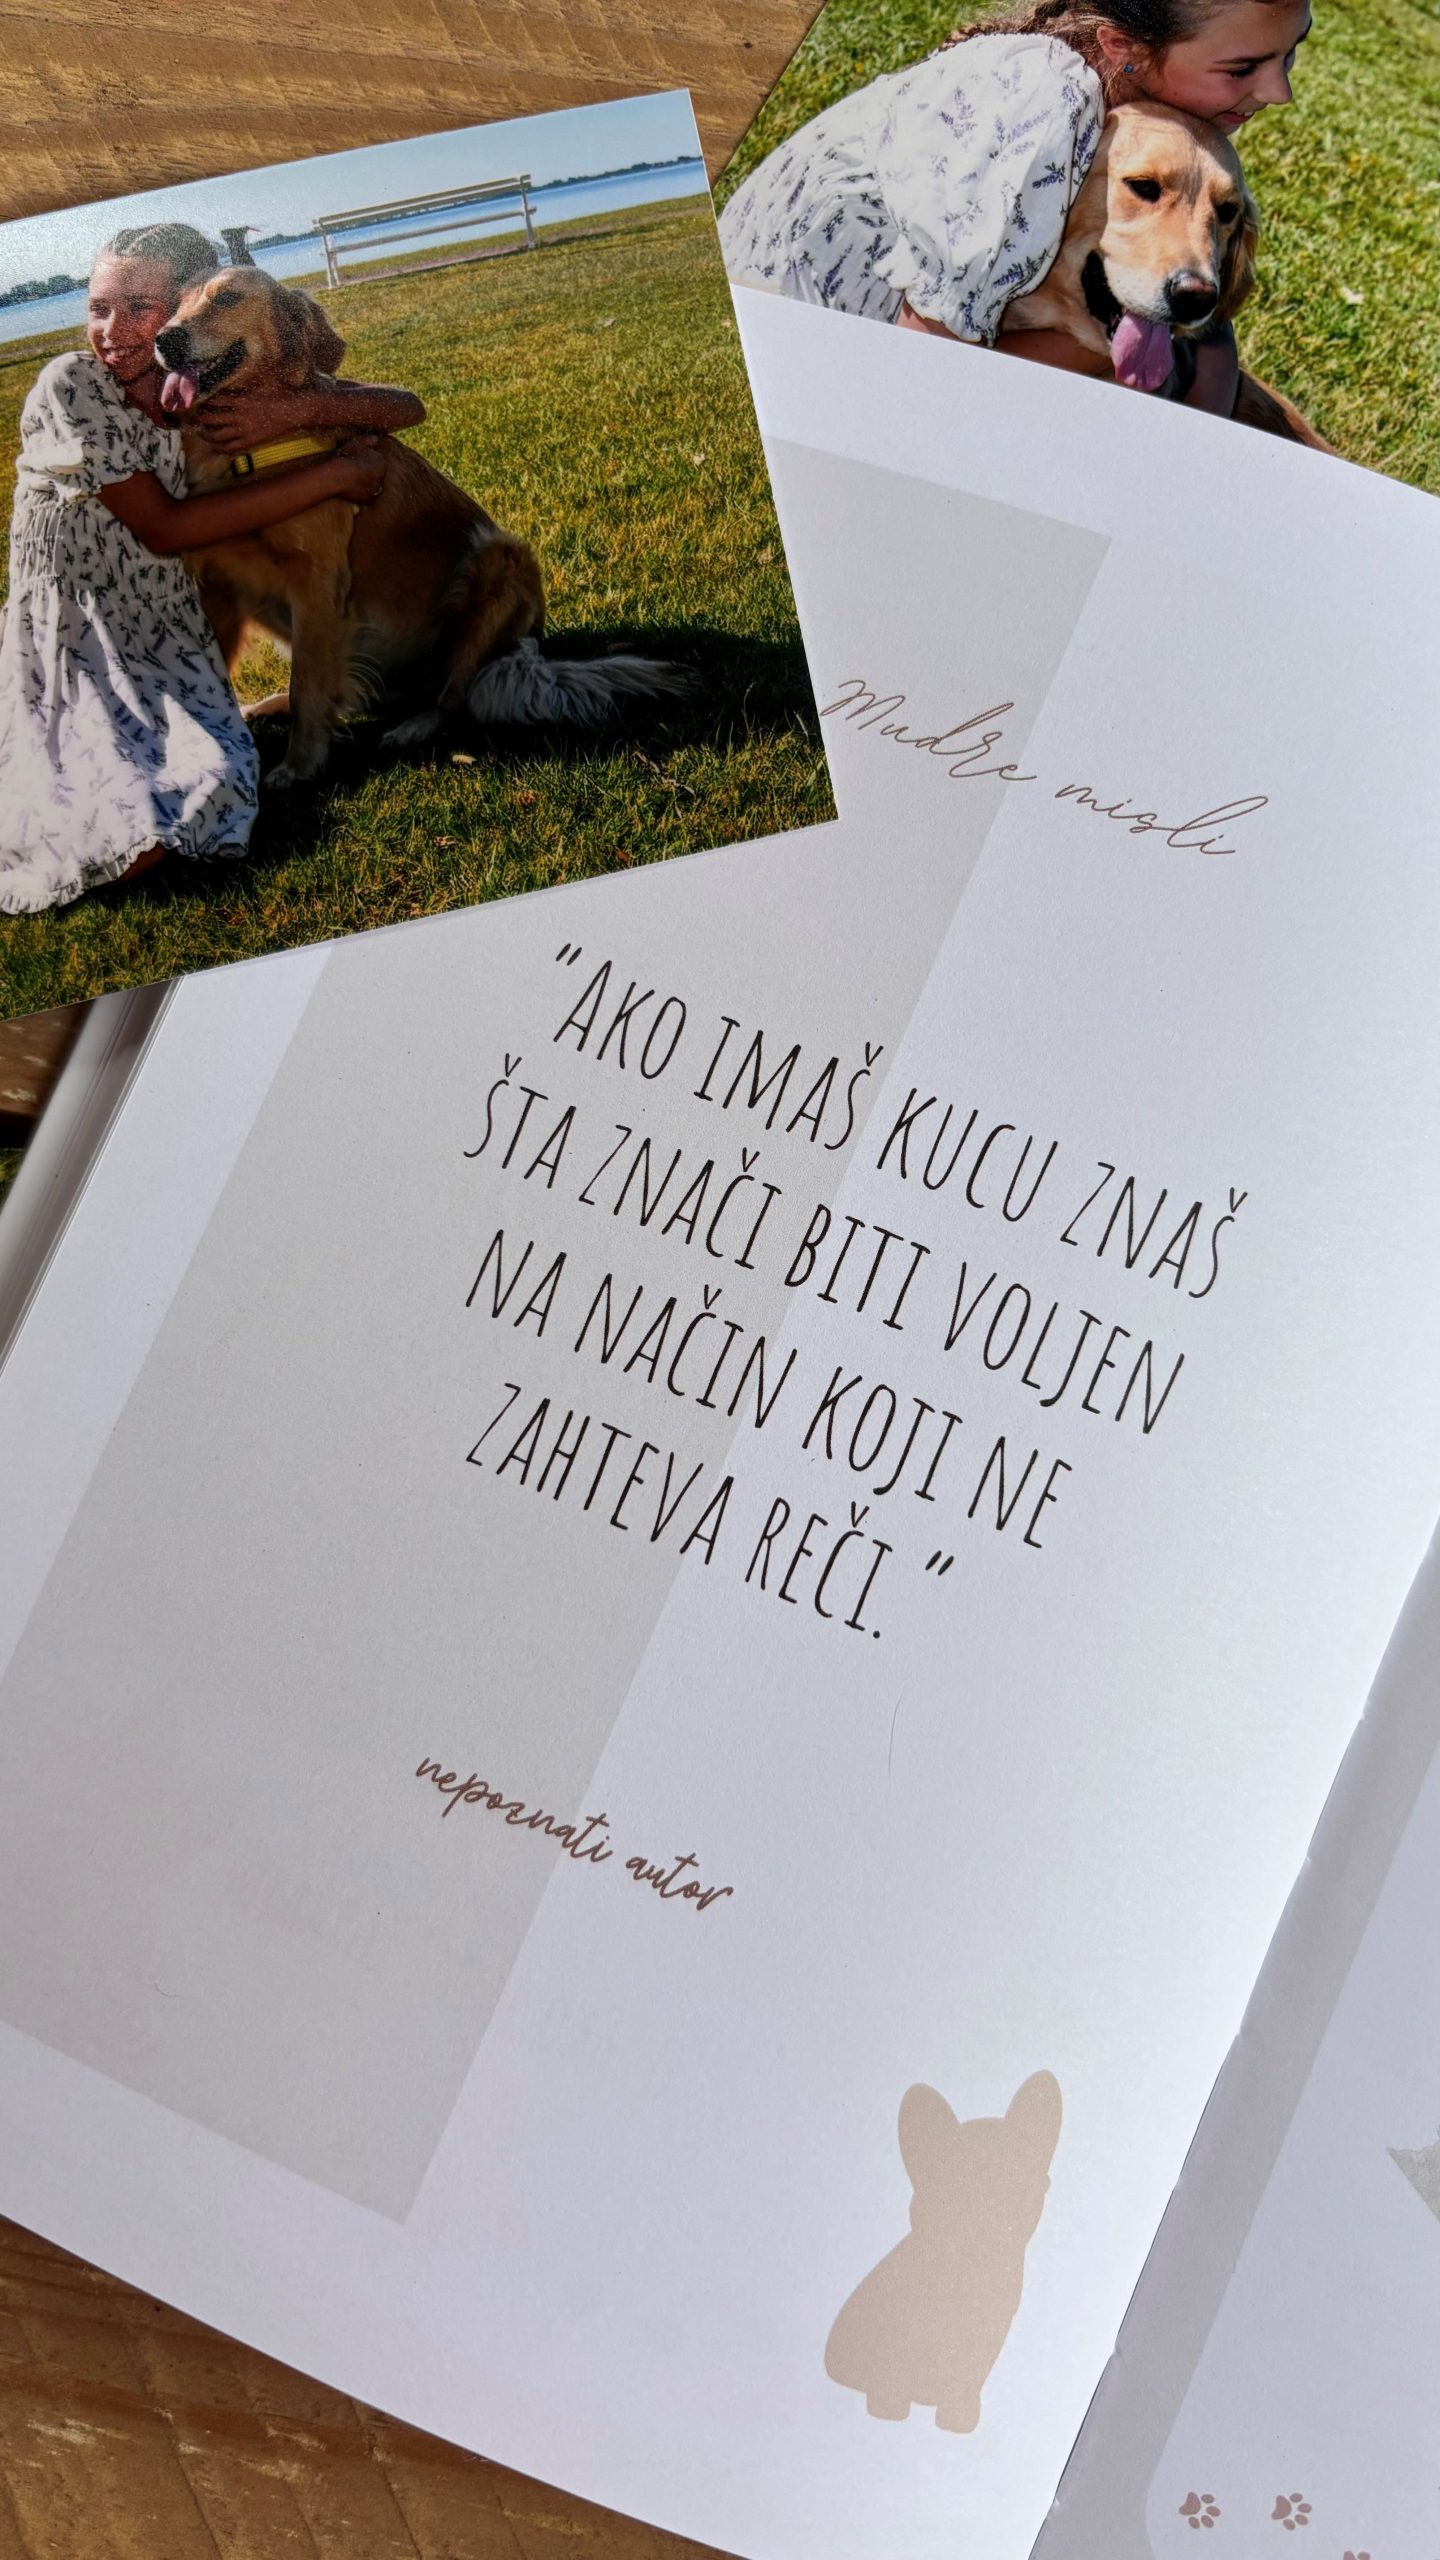 Mudre misli
"AKO IMAŠ KUCU ZNAŠ
ŠTA ZNAČI BITI VOLJEN
NA NAČIN KOJI NE
ZAHTEVA REČI."
nepoznati autor